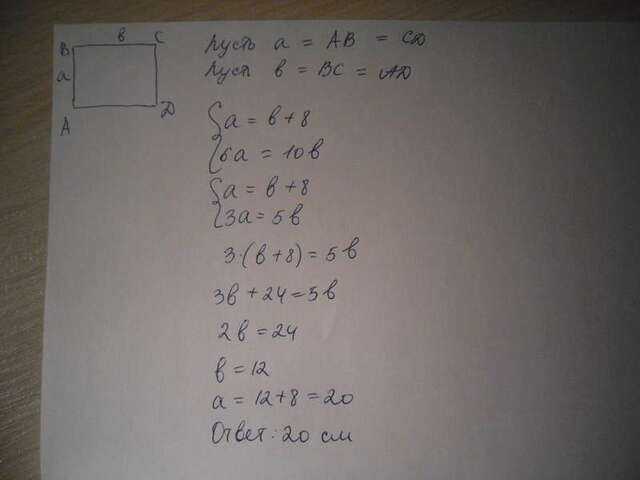 B в C
a
A D
Пусть a = AB = CD
Пусть в = BC = AD
a = в + 8
6a = 10 в
a = в + 8
3a = 5 в
3·(в + 8) = 5 в
3в + 24 = 5в
2в = 24
в = 12
a = 12 + 8 = 20
Ответ: 20 см